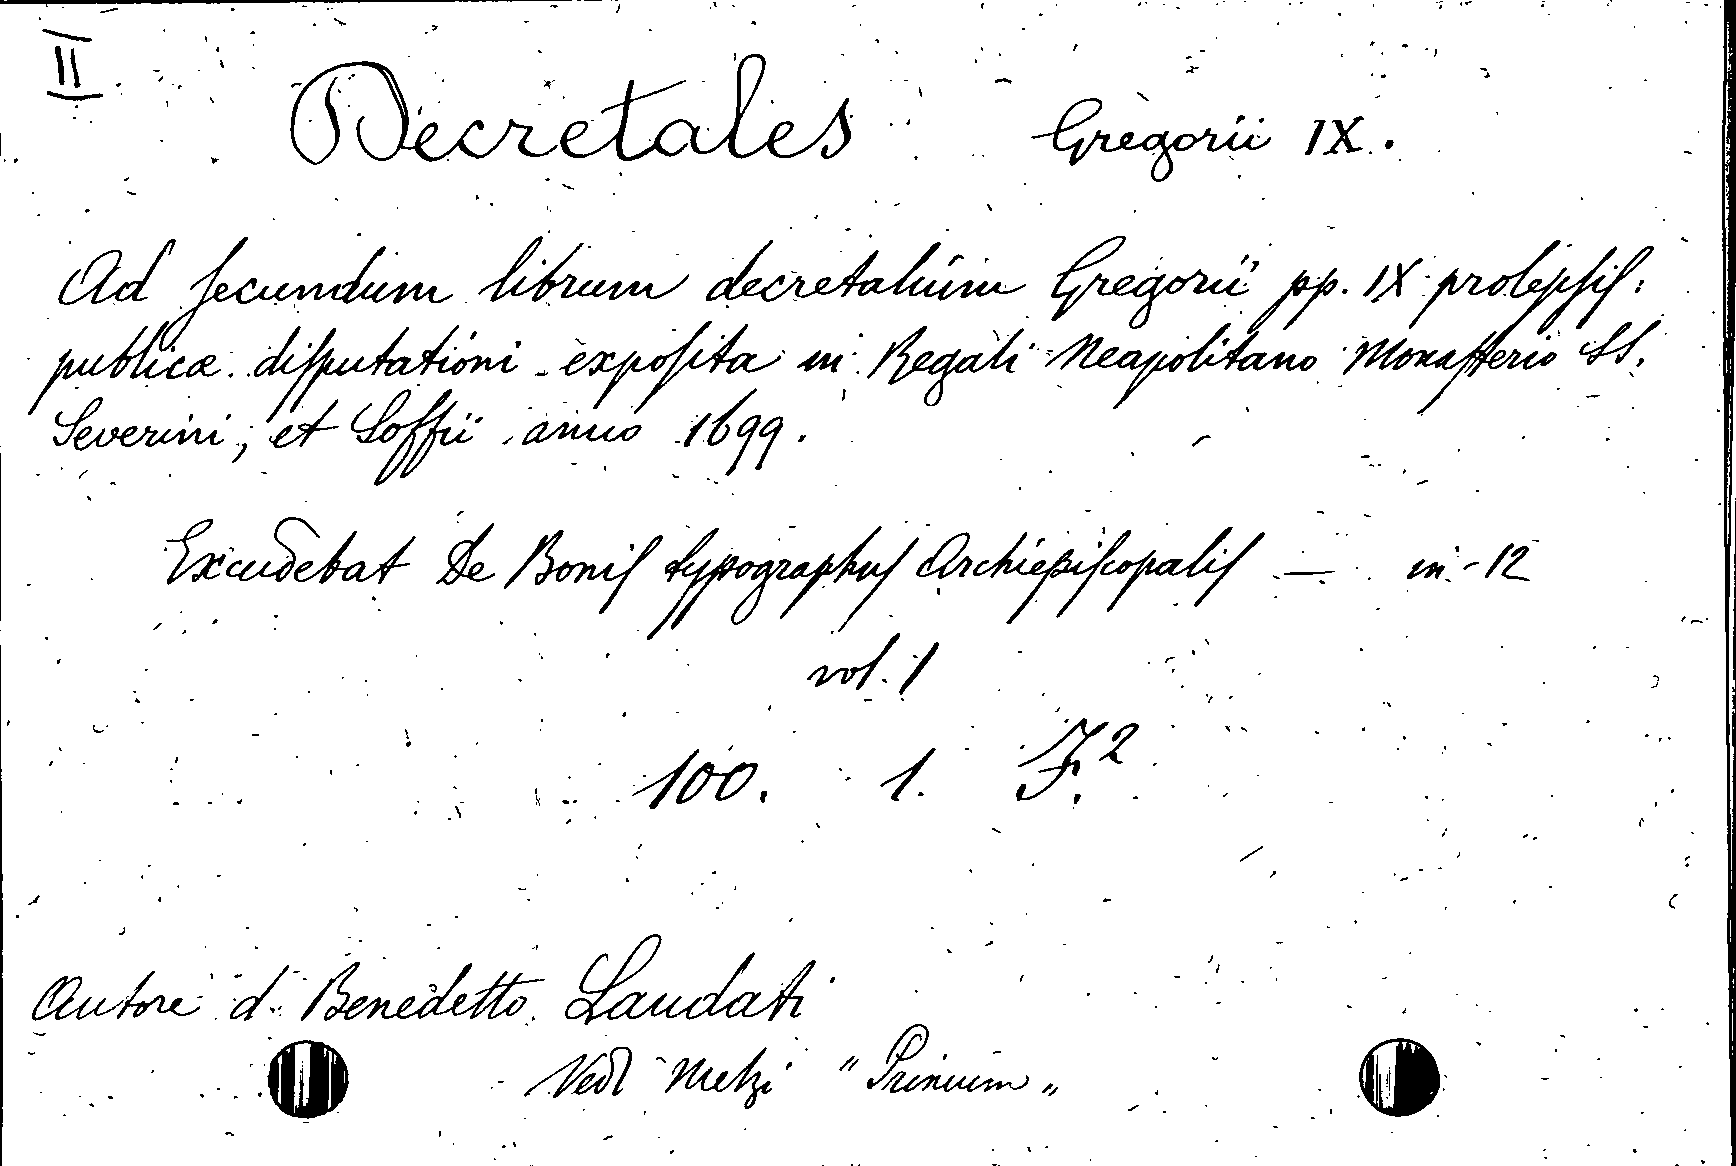 II
Decretales Gregorii IX.
Ad ſecundum librum decretalium Gregorii pp. IX prolepſiſ:
publicæ diſputationi expoſita in Regali Neapolitano Monaſterio SS.
Severini, et Soſſii anno 1699.
Excudebat De Boniſ typographuſ Archiepiſcopaliſ — in-12
vol. 1
100. 1. F.2
Autore d. Benedetto Laudati
Vedi Melzi "Primum"